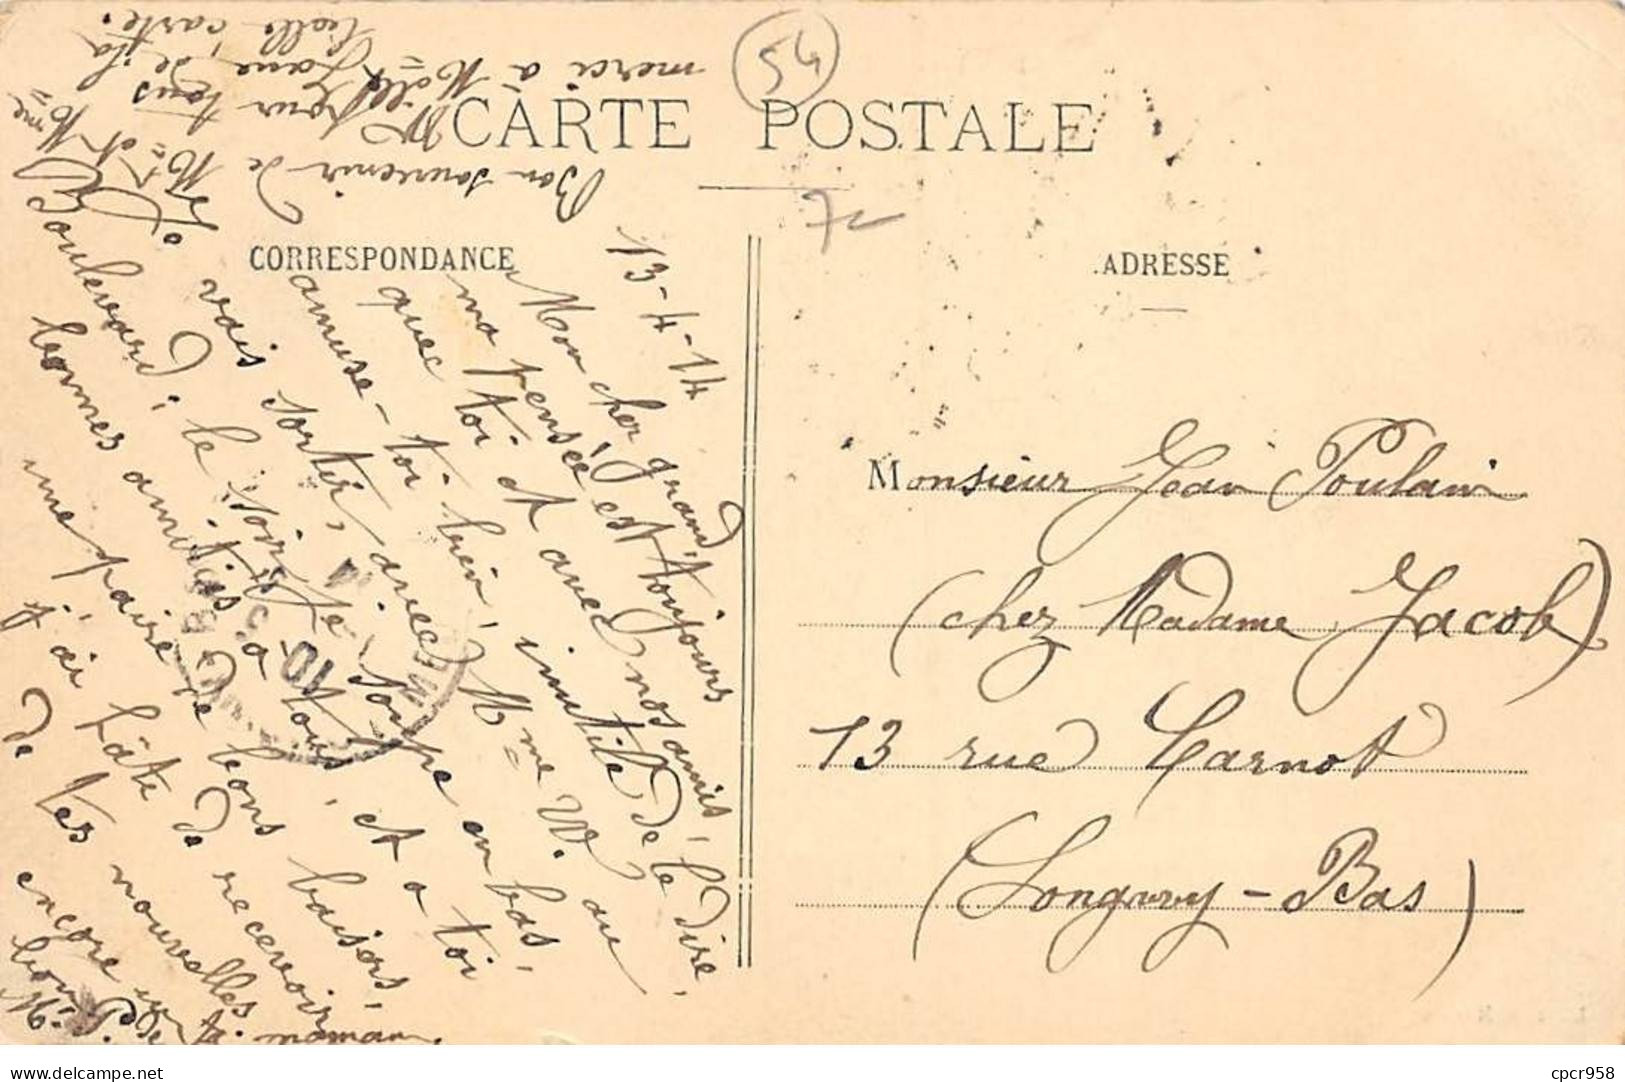 45
CARTE POSTALE
CORRESPONDANCE
ADRESSE
13-4-14
Mon cher grand,
ma pensée est toujours
avec toi et avec nos amis,
amuse-toi bien, inutile de le dire,
Je vais sortir, avec Mme W. au
Boulevard; le soir, je soupe en bas,
bonnes amitiés à tous, et à toi
une paire de bons baisers,
j'ai hâte de recevoir
de tes nouvelles
encore un
bon
maman
Bon souvenir de
Mr et Mme
W pour tous
merci à Melle Jane, de sa
belle carte.
Monsieur Jean Poulain
(chez Madame Jacob)
13 rue Carnot
(Longwy-Bas)
delcampe.net
cpcr958